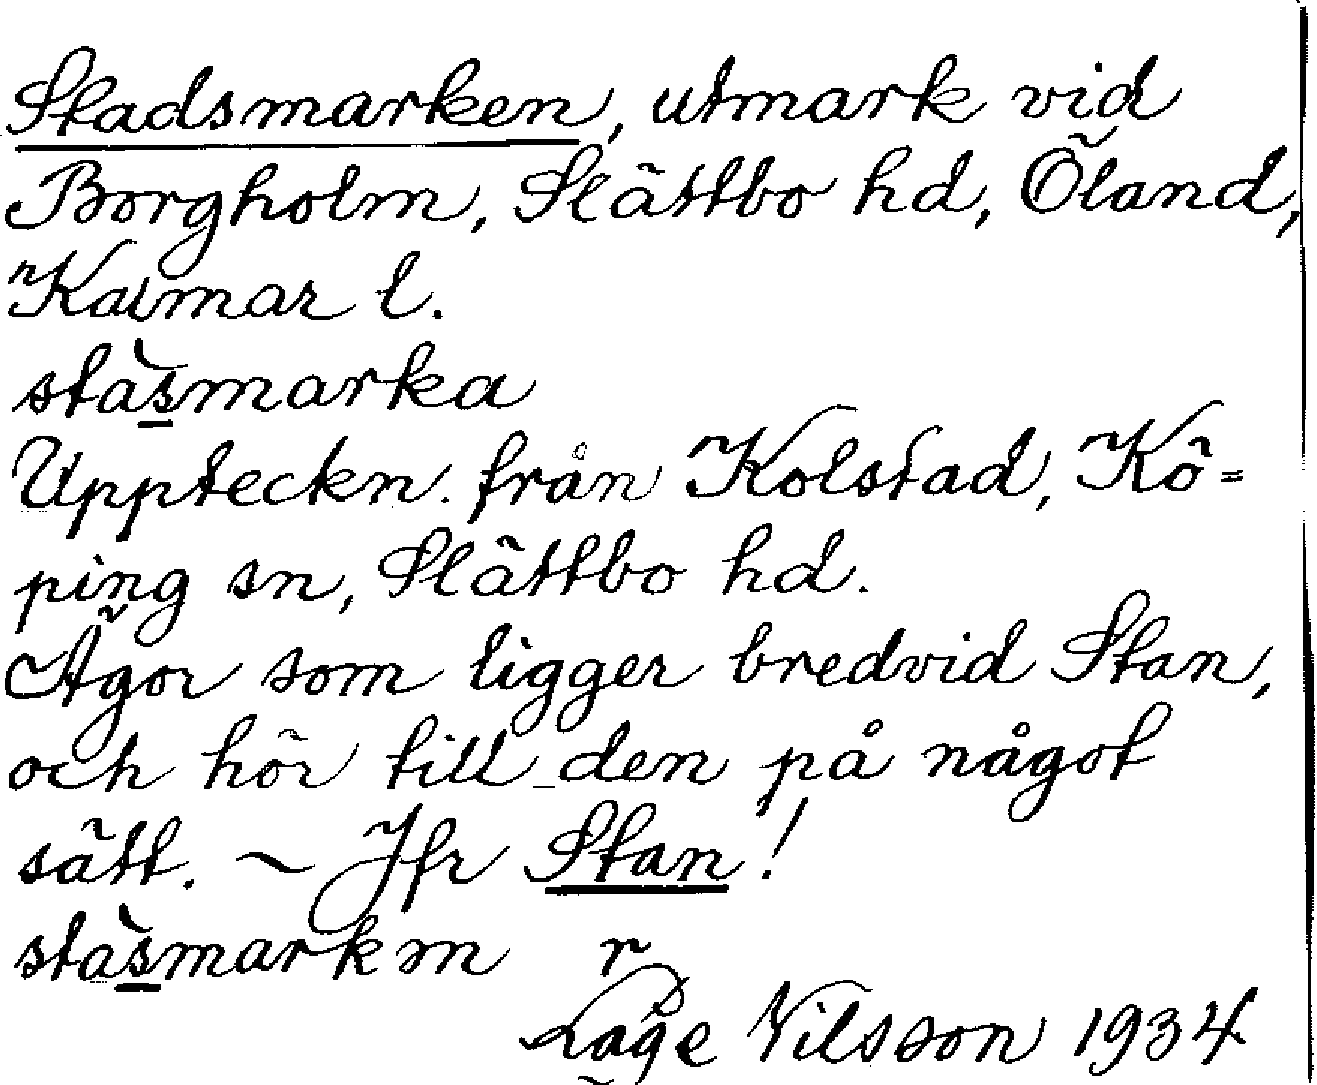 Stadsmarken, utmark vid
Borgholm, Slättbo hd, Öland,
Kalmar l.
stàsmarka
Uppteckn. från Kolstad, Kö=
ping sn, Slättbo hd.
Ägor som ligger bredvid Stan,
och hör till den på något
sätt. ~ Jfr Stan!
stàsmarkm r
Låge Nilsson 1934